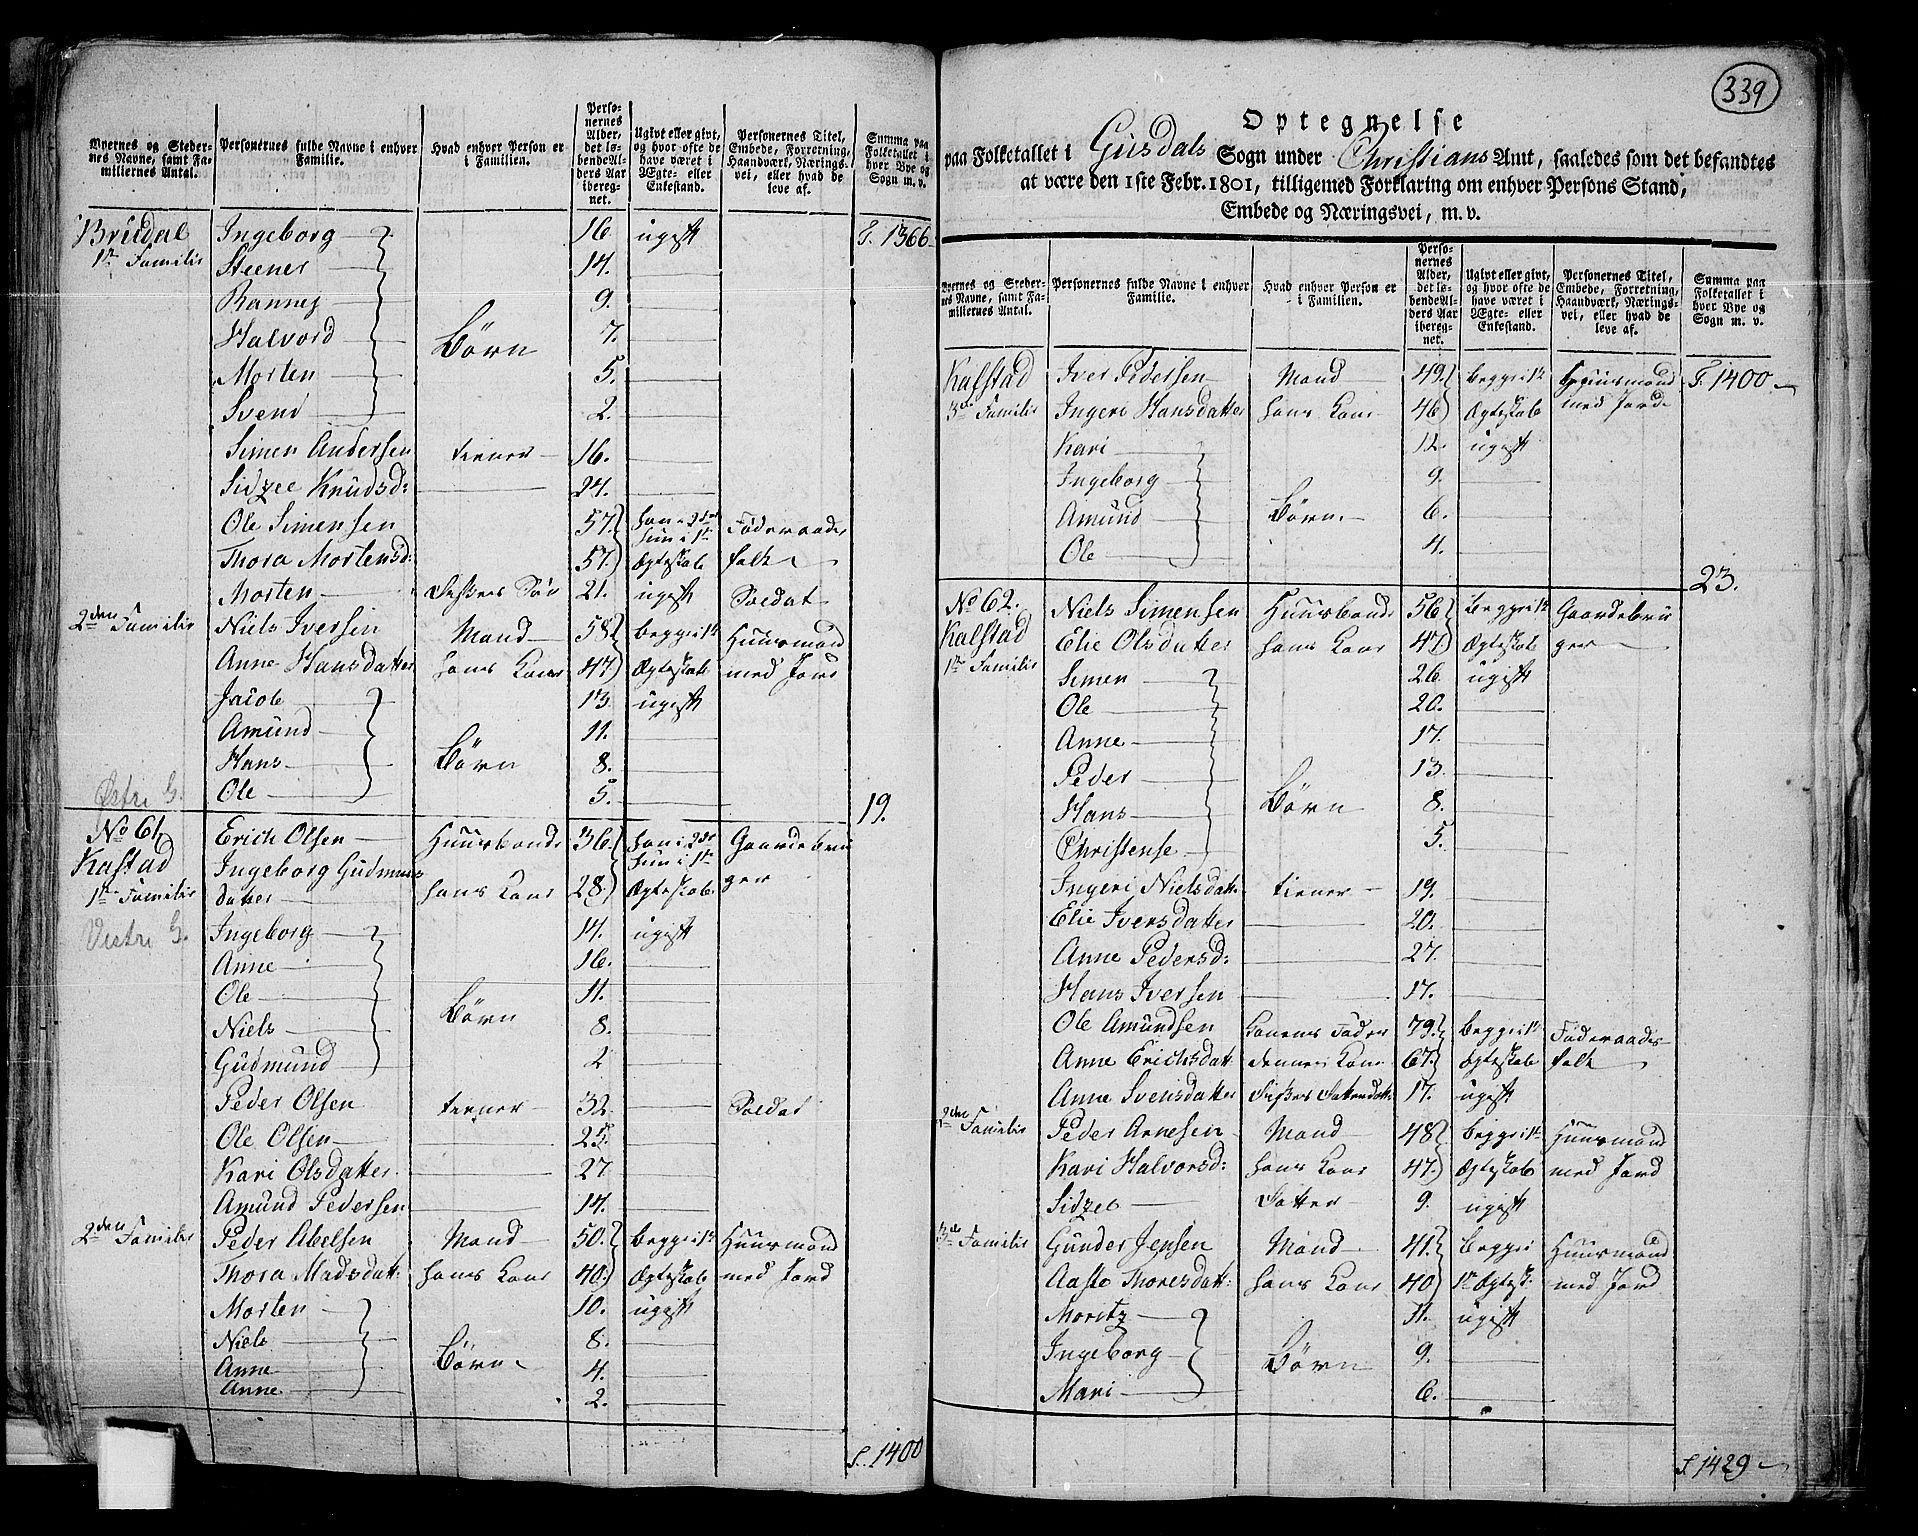 Byernes og Steder-
nes Navne, samt Fa-
miliernes Antal.
Personernes fulde Navne i enhver
Familie.
Hvad enhver Person er
i Familien.
Perso-
nernes
Alder,
det lø-
bende Al-
ders Aar
ibereg-
net.
Ugivt eller givt,
og hvor ofte de
have været i
Ægte- eller
Enkestand.
Personernes Titel,
Embede, Forretning,
Haandværk, Nærings-
vei, eller hvad de
leve af.
Summa paa
Folketallet i
hver Bye og
Sogn m. v.
Bruudal Ingeborg 16 ugift T. 1366
1ste Familie Steener 14.
Ranney 9.
Halvord Børn 7.
Morten 5.
Svend 2.
Simen Andersen tiener 16.
Sidzee Knudsd: 24.
Ole Simensen 57. han i 2det Føderaads
hun i 1te
Thora Mortensd: 57. Ægteskab folk
Morten 21. ugift Soldat
2den Familie Niels Iversen Mand 58 begge i 1te Huusmand
Anne Hansdatter hans Kone 47 Ægteskab med Jord
Jacob 13 ugift
Amund 11.
Hans Børn 8.
Østre G. Ole 5. 19.
No 61. Erich Olsen Huusbonde 36. han i 2det Gaardebru
Kalstad Ingeborg Gudmunds hun i 1te
1te Familie datter hans Kone 28. Ægteskab ger
Vestre G. Ingeborg 14. ugift
Anne 16.
Ole 11.
Niels Børn 8.
Gudmund 2
Peder Olsen tiener 32. Soldat
Ole Olsen 25.
Kari Olsdatter 27
Amund Pedersen 14.
2den Familie Peder Abelsen Mand 50. begge i 1te Huusmand
Thora Madsdatt: hans Kone 40. Ægteskab med Jord
Morten 10. ugift
Niels 8.
Anne Børn 4.
Anne 2.
S. 1400
339
Optegnelse
paa Folketallet i Gusdals Sogn under Christians Amt, saaledes som det befandtes
at være den 1ste Febr. 1801, tilligemed Forklaring om enhver Persons Stand,
Embede og Næringsvei, m. v.
Byernes og Steder-
nes Navne, samt Fa-
miliernes Antal.
Personernes fulde Navne i enhver
Familie.
Hvad enhver Person er
i Familien.
Perso-
nernes
Alder,
det lø-
bende Al-
ders Aar
ibereg-
net.
Ugivt eller givt,
og hvor ofte de
have været i
Ægte- eller
Enkestand.
Personernes Titel,
Embede, Forretning,
Haandværk, Nærings-
vei, eller hvad de
leve af.
Summa paa
Folketallet i
hver Bye og
Sogn m. v.
Kalstad Iver Pedersen Mand 49. begge i 1te Huusmand T. 1400
3de Familie Ingeri Hansdatter hans Kone 46 Ægteskab med Jord
Kari 12. ugift
Ingeborg 9.
Amund Børn 6.
Ole 4.
23.
No 62. Niels Simensen Huusbonde 56 begge i 1te Gaardebru
Kalstad Elie Olsdatter hans Kone 47. Ægteskab ger
1te Familie Simen 26. ugift
Ole 20.
Anne 17.
Peder 13.
Hans Børn 8.
Christense 5.
Ingeri Nielsdatt: tiener 19.
Elie Iversdatter 20.
Anne Pedersd: 27.
Hans Iversen 17.
Ole Amundsen Konens Fader 79. begge i 1te Føderaads
Anne Erichsdatt: dennes Kone 67. Ægteskab folk
Anne Svensdatter 17. ugift
2den Familie Peder Arnesen Mand 48 begge i 1te Huusmand
Kari Halvorsd: hans Kone 47. Ægteskab med Jord
Sidzee Datter 9. ugift
3de Familie Gunder Jensen Mand 41. begge i Huusmand
Aaste Thoresdatt: hans Kone 40. 1te Ægtesk: med Jord
Moritz 11. ugift
Ingeborg Børn 9.
Mari 6.
S. 1429